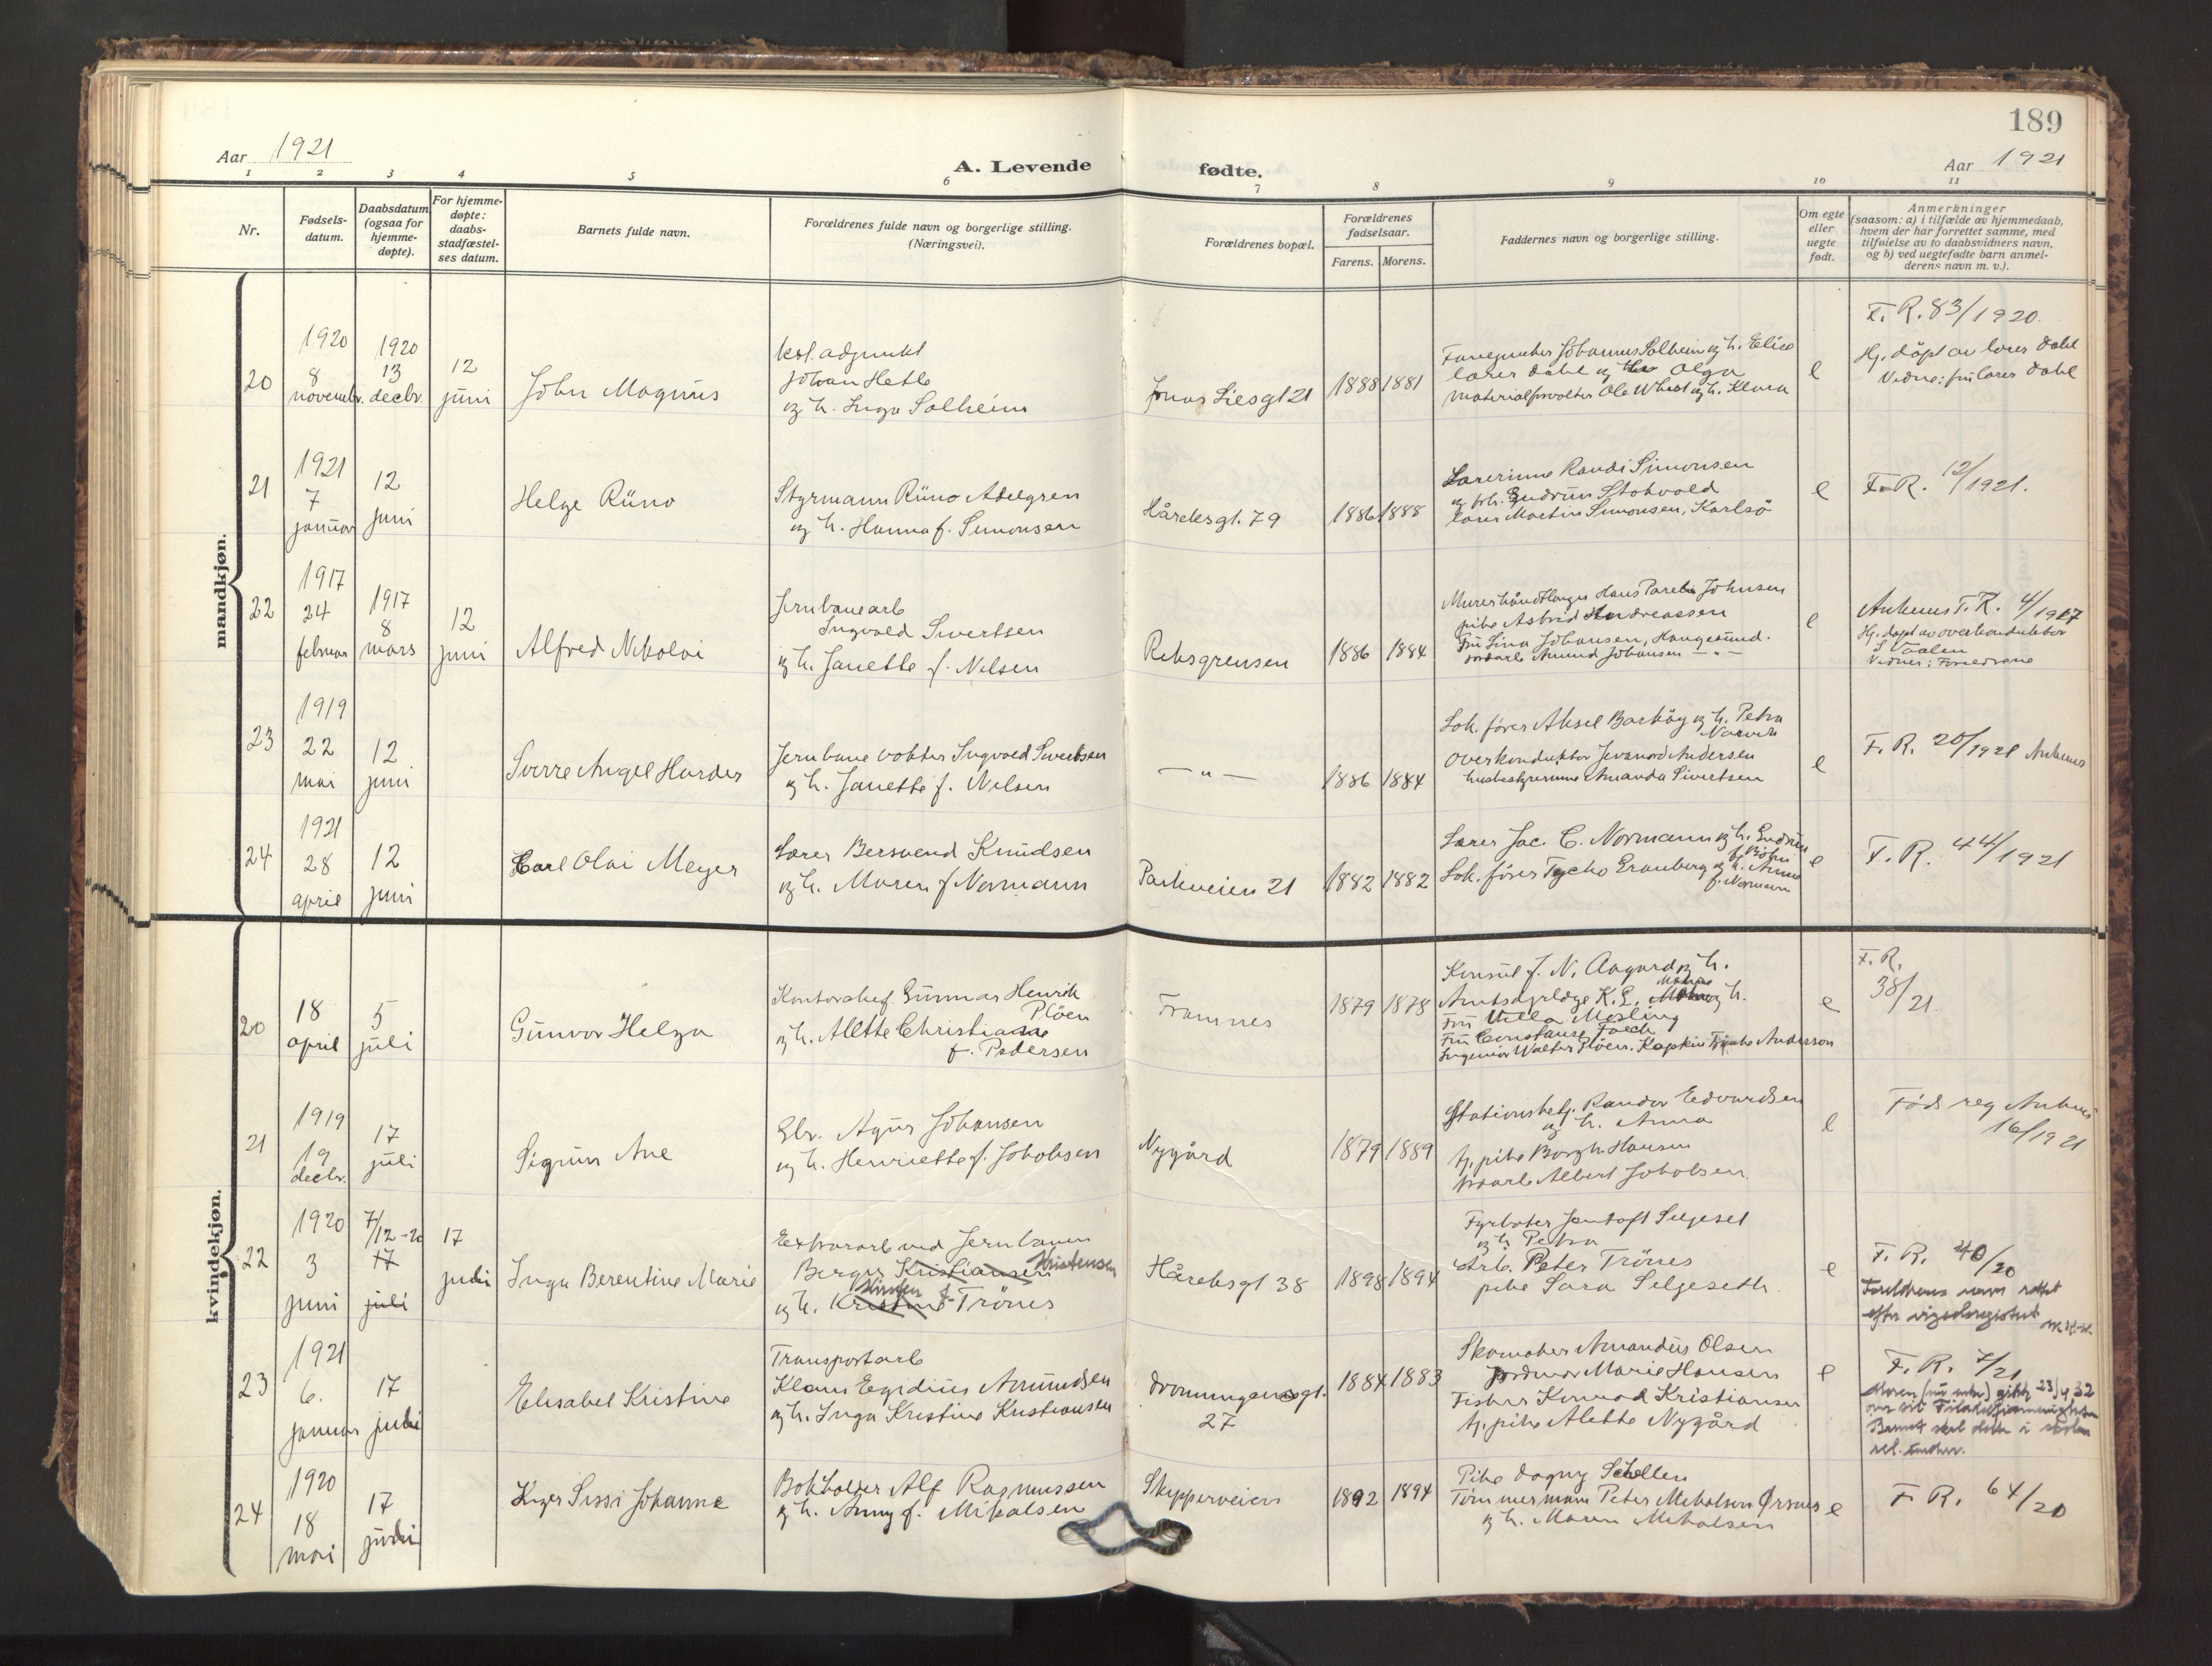 189
Aar 1921
A. Levende fødte.
Aar 1921
1 2 3 4 5 6 7 8 9 10 11
Nr.
Fødsels-
datum.
Daabsdatum
(ogsaa for
hjemme-
døpte).
For hjemme-
døpte:
daabs-
stadfæstel-
ses datum.
Barnets fulde navn.
Forældrenes fulde navn og borgerlige stilling.
(Næringsvei).
Forældrenes bopæl.
Forældrenes
fødselsaar.
Farens. Morens.
Faddernes navn og borgerlige stilling.
Om egte
eller
uegte
født.
Anmerkninger
(saasom: a) i tilfælde av hjemmedaab,
hvem der har forrettet samme, med
tilføielse av to daabsvidners navn,
og b) ved uegtefødte barn anmel-
derens navn m. v.).
mandkjøn.
20
1920
8
novembr.
1920
13
decbr.
12
juni
John Magnus
kst. adjunkt
Johan Hetle
og h. Inga Solheim
Jonas Liesgt 21
1888 1881
Johannes Solheim og h. Elise
lærer Dahl og Olga
materialforvalter Ole og h. Klara
e
F. R. 83/1920.
Hj. døpt av lærer Dahl
Vidne: fru lærer Dahl
21
1921
7
januar
12
juni
Helge Rüno
Styrmann Rüno Adelgren
og h. Hanna f. Simonsen
Håreksgt. 79
1886 1888
Lærerinne Randi Simonsen
og frk. Gudrun Stokvold
lærer Martin Simonsen, Karlsö
e
F. R. 12/1921.
22
1917
24
februar
1917
8
mars
12
juni
Alfred Nikolai
Jernbanearb
Ingvald Sivertsen
og h. Janette f. Nelsen
Reksgrensen
1886 1884
Murerhåndtlanger Hans Johnsen
pike Astrid Andreassen
Fru Lina Johansen, Haugesund.
Amund Johansen —„—
e
Ankenes F. R. 4/1917
Hj. døpt av overkonduktør
Vidner: Foreldrene
23
1919
22
mai
12
juni
Sverre Angel Harder
Jernbane vokter Ingvald Sivertsen
og h. Janette f. Nelsen
—„—
1886 1884
Lok. fører Aksel Barköy og h. Petra
Narvik
overkonduktör Andersen
husbestyrerinne Amanda Sivertsen
e
F. R. 20/1921 Ankenes
24
1921
28
april
12
juni
Carl Olai Meyer
Lærer Bersvend Knudsen
og h. Maren f Normann
Parkveien 21
1882 1882
Lærer Jac. C. Normann og h. Gudrun
f. Böhn
Lok. fører Tycho Eranberg og h. Anna
f. Normann
e
F. R. 44/1921
kvindekjøn.
20
18
april
5
juli
Gunvor Helga
Kontorchef Gunnar Henrik
Plöen
og h. Alette Christiane
f. Pedersen
Framnes
1879 1878
Konsul J. N. Aagard og h.
K. L. og h.
Fru Ulla Mosling
Fru Constanse Falch
Ingeniör Walter Plöen. Andersson
e
F. R.
38/21.
21
1919
19
decbr.
17
juli
Sigrun Ane
Elv. Johansen
og h. Henriette f. Jakobsen
Nygård
1879 1889
Stationsbetj. Randor Edvardsen
og h. Anna
tj. pike Borgh. Hansen
Albert Jakobsen.
e
Föds reg Ankenes
16/1921
22
1920
3
juni
7/12-20
17
juli
17
juli
Inga Berentine Marie
Extraarb ved Jernbanen
Berger Kristiansen Kristensen
og h. Kirsten Kristine f. Trönes
Håreksgt 38
1898 1894
Fyrböter Jentoft Seljeset
og h. Petra
Arb. Peter Trönes
pike Sara Seljeseth.
e
F. R. 40/20
Foreldrenes navn rettet
efter vigselsregistret
23
1921
6.
januar
17
juli
Elisabet Kristine
Transportarb
Klaus Egidius Amundsen
og h. Inga Kristine Kristiansen
Dronningensgt.
27
1884 1883
Skomaker Amandus Olsen
Jordmor Marie Hansen
Fisker Konrad Kristiansen
tj. pike Alette Nygård
e
F. R. 7/21
23/4 32
Barnet skal delta i skolen
rel. under.
24
1920
18
mai
17
juli
Inger Sissi Johanne
Bokholder Alf Rasmussen
og h. Anny f. Mikalsen
Skipperveien
1892 1894
Pike Dagny Schellen
Tömmermann Peter Mikalsen Örsnes
og h. Maren Mikalsen
e
F R. 64/20